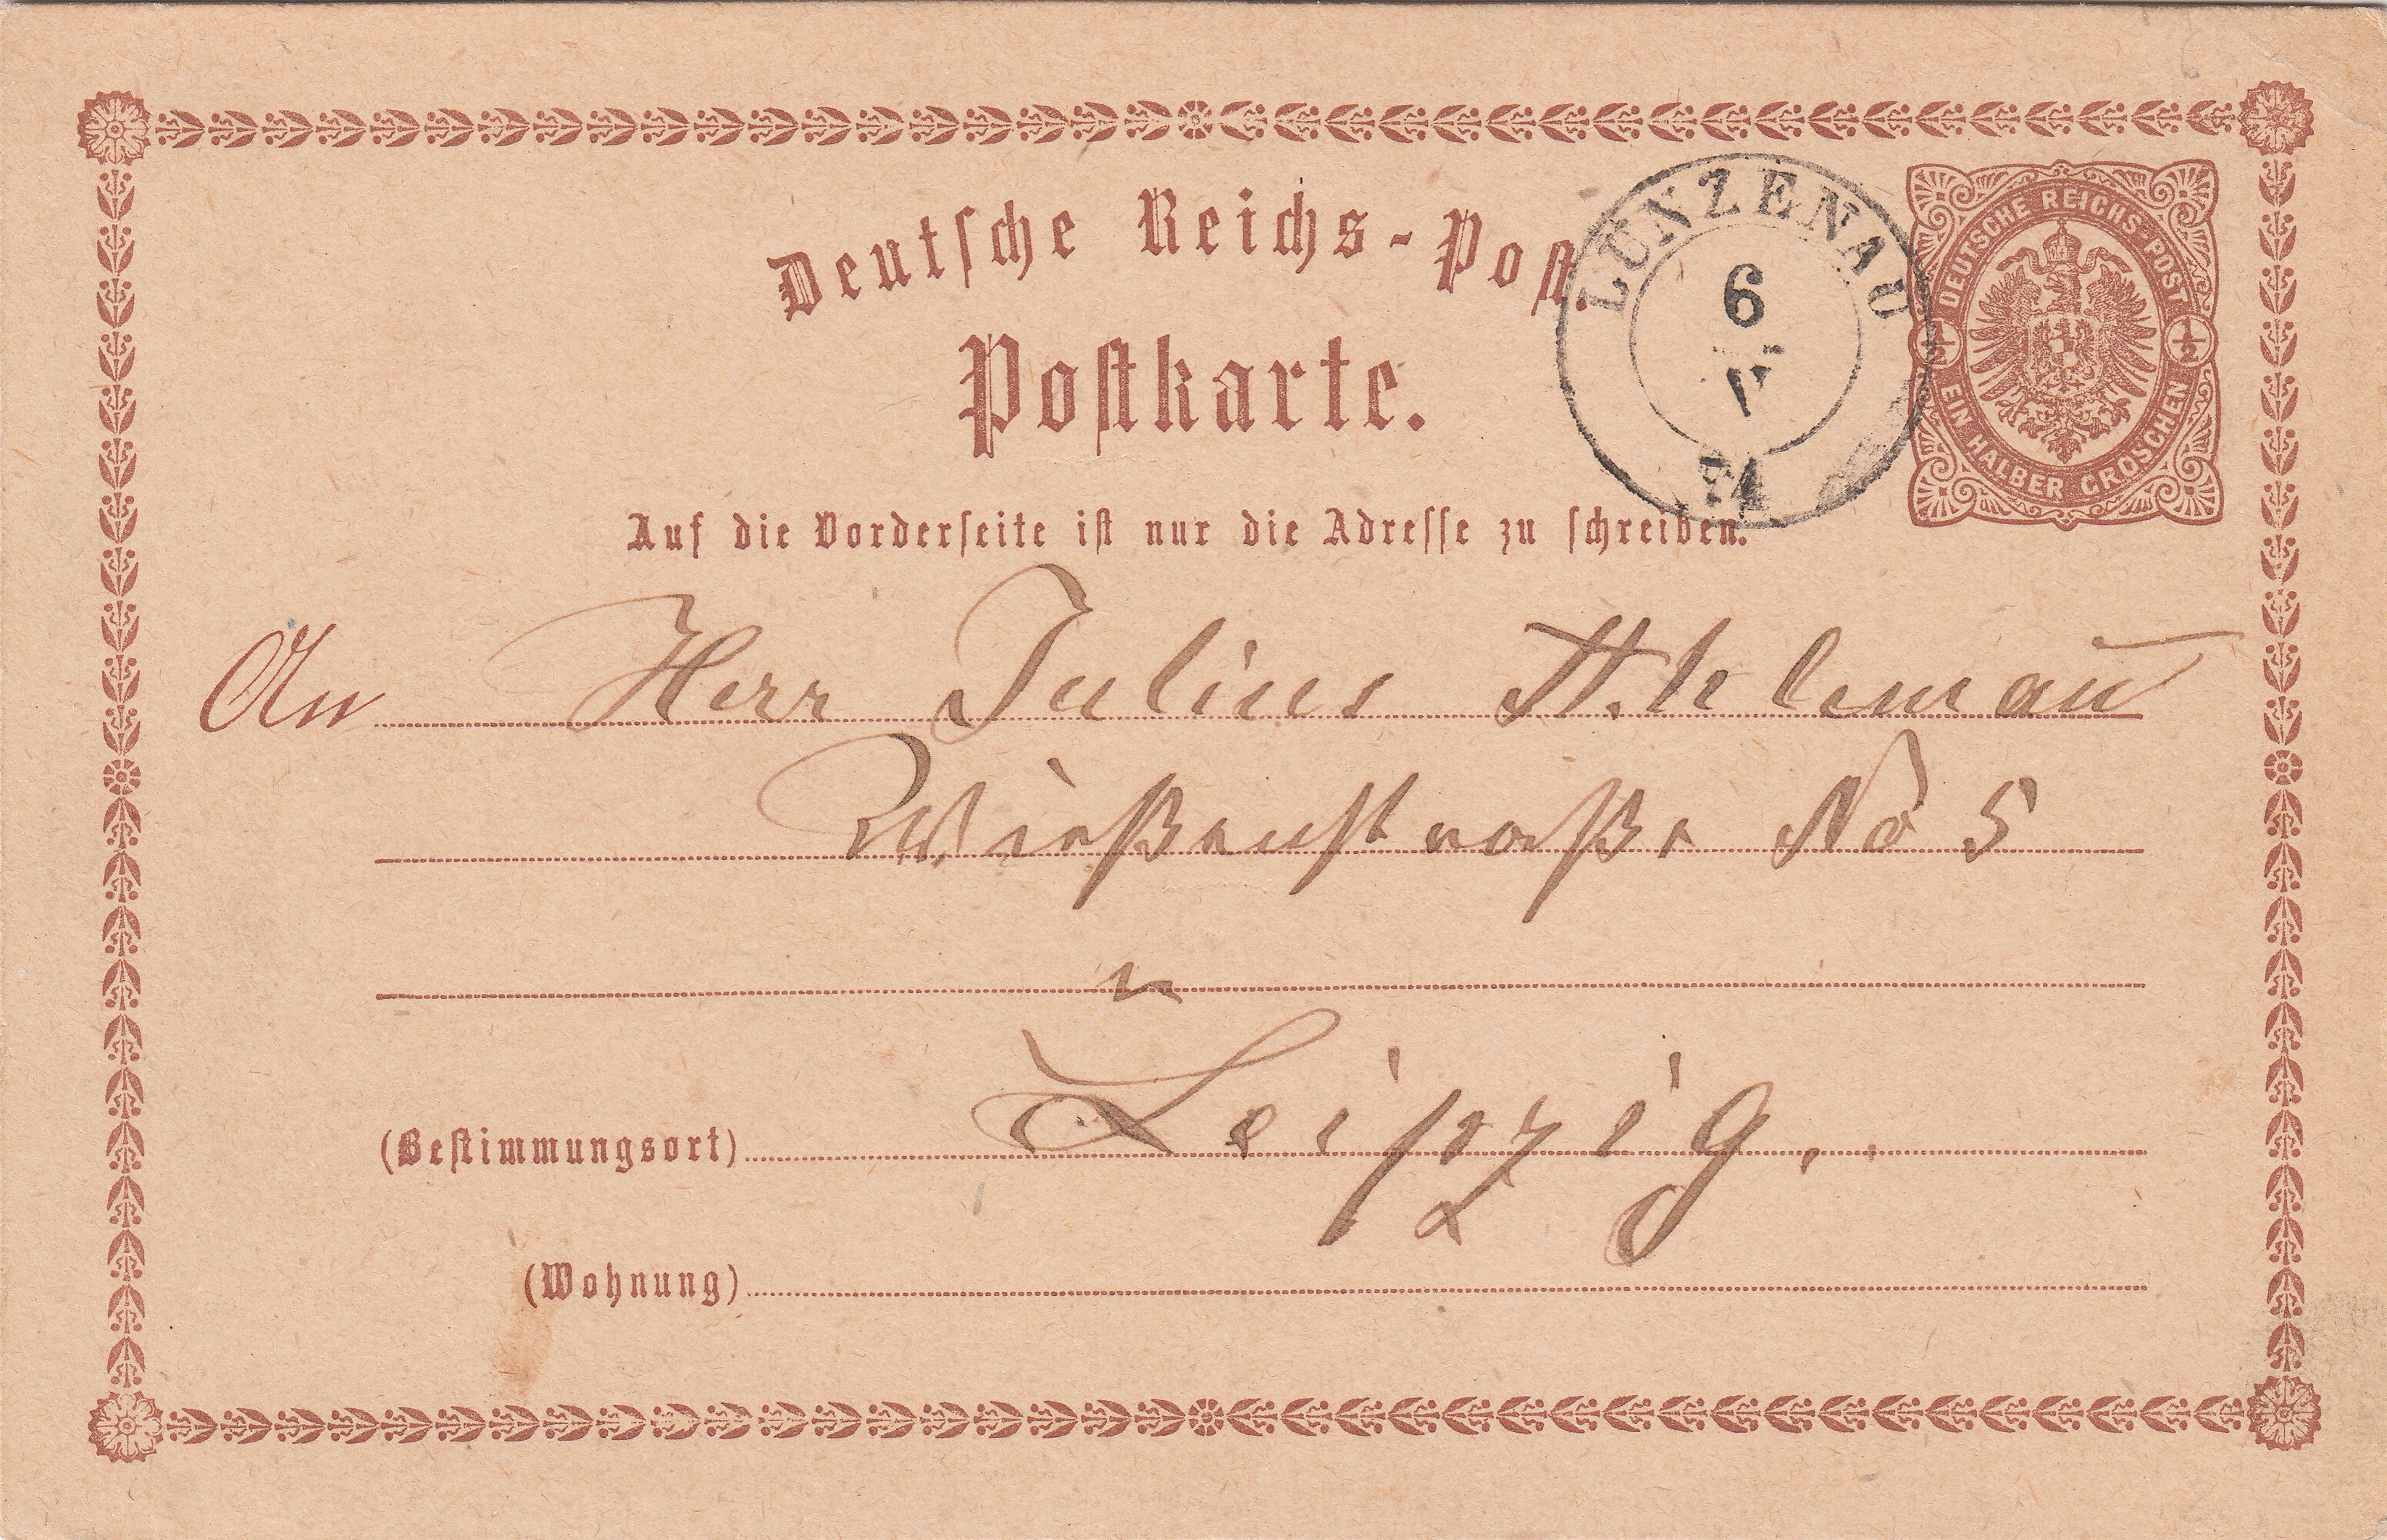 Deutsche Reichs-Post.
Postkarte.
LUNZENAU
6
V
74
DEUTSCHE REICHS-POST
1/2 1/2
EIN HALBER GROSCHEN
Auf die Vorderseite ist nur die Adresse zu schreiben.
An Herr Julius
Wießenstraße No 5
in
(Bestimmungsort) Leipzig,
(Wohnung)